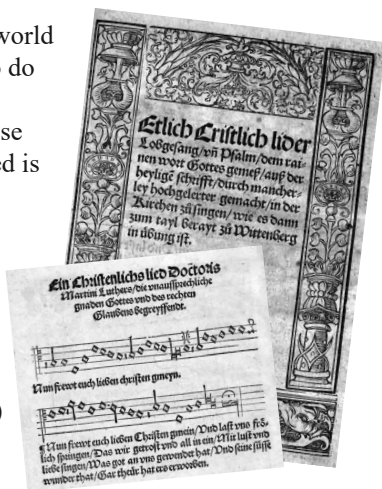 world
do
se
ed is
)
Etlich Cristlich lider
Lobgesang/vñ Psalm/dem rai-
nen wort Gottes gemeß/auß der
heyligē schrifft/durch mancher-
ley hochgelerter gemacht/in der
Kirchen zů singen/wie es dann
zum tayl berayt zů Wittenberg
in übung ist.
Ein Christenlichs lied Doctoris
Martini Luthers/die vnaussprechliche
gnaden Gottes vnd des rechten
Glaubens begreyffendt.
Nun frewt euch lieben christen gmeyn.
Nun frewt euch lieben Christen gmein/Vnd last vns frö-
lich springen/Das wir getrost vnd all in ein/Mit lust vnd
liebe singen/Was got an vns gewendet hat/Vnd seine süsse
wunder that/Gar theür hat ers erworben.